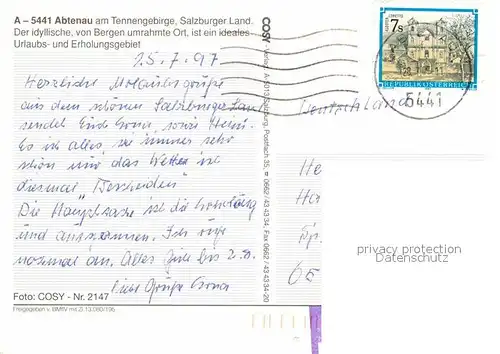 A – 5441 Abtenau am Tennengebirge, Salzburger Land.
Der idyllische, von Bergen umrahmte Ort, ist ein ideales
Urlaubs- und Erholungsgebiet
25.7.97
Herzliche Urlaubsgrüße
aus dem schönen Salzburger Land
sendet Euch sowie
Es ist alles, wie immer sehr
schön nur das Wetter ist
diesmal "Bescheiden"
Die Hauptsache ist die Erholung
und ausspannen. Ich rufe
nochmal an. Alles Gute bis
Liebe Grüße
Foto: COSY - Nr. 2147
Freigegeben v. BMflV mit Zl 13.080/196
COSY - Verlag, A-5013 Salzburg, Postfach 35, 0662/43 43 34, Fax 0662/43 43 34-20
7s
REPUBLIK ÖSTERREICH
5441
Deutschland
He
Ha
privacy protection
Oldthing.de
6E